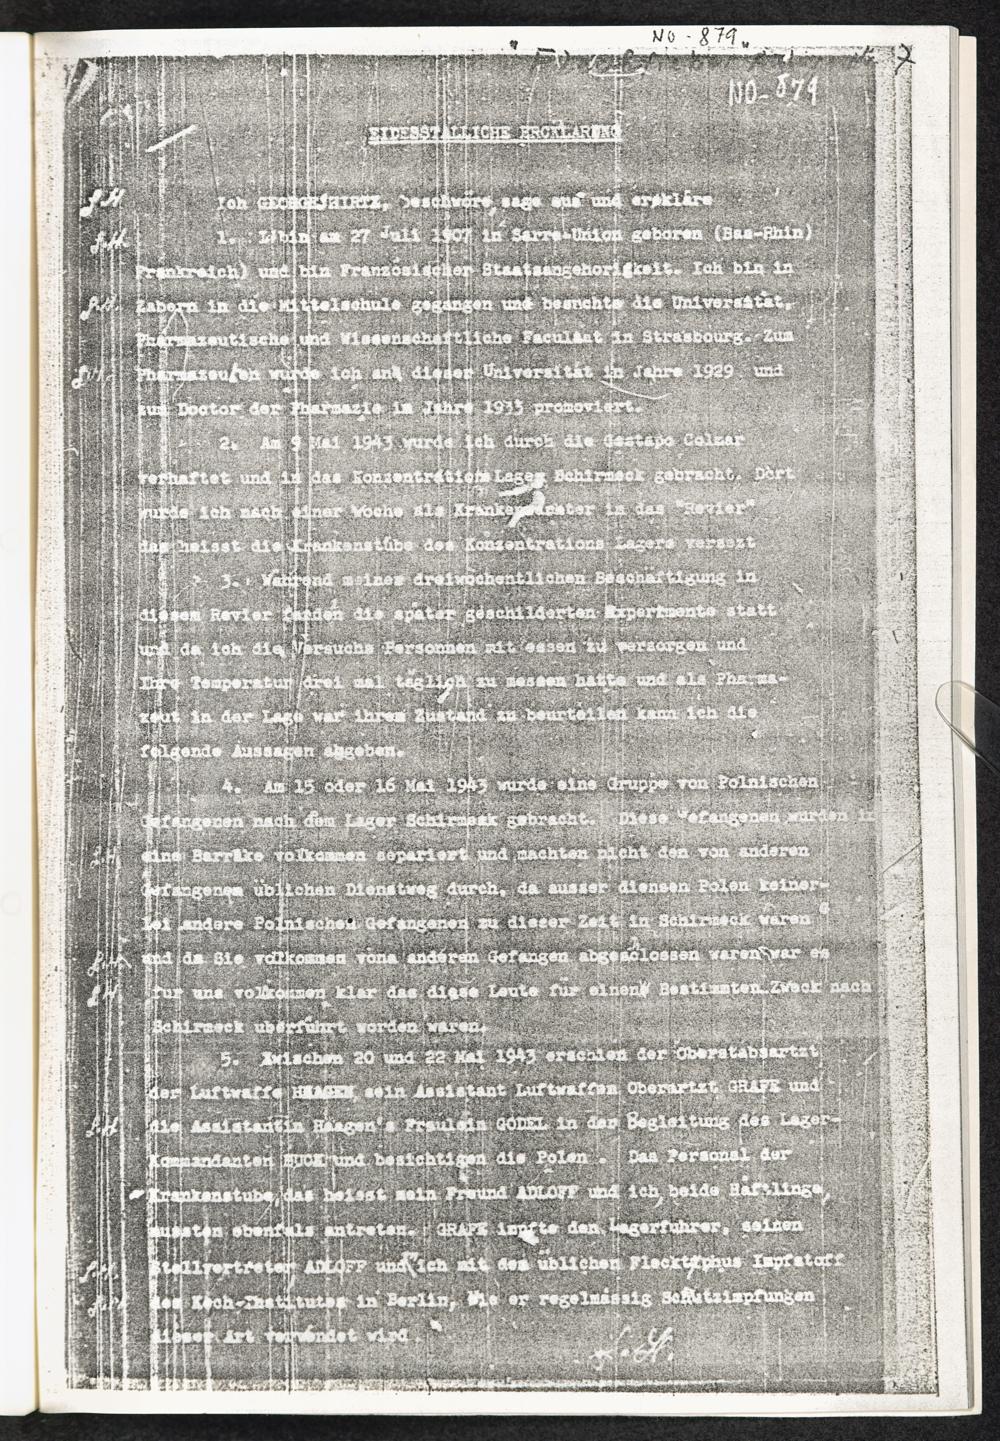 NO - 879
NO-879
EIDESSTALLICHE ERCKLARUNG
Ich GEORGE HIRTZ, beschwöre, sage aus und ercklare
1. I bin am 27 Juli 1907 in Sarre-Union geboren (Bas-Rhin)
Frankreich) und bin Französischer Staatsangehorigkeit. Ich bin in
Zabern in die Mittelschule gegangen und besuchte die Universität,
Pharmazeutische und Wissenschaftliche Facultät in Strasbourg. Zum
Pharmazeuten wurde ich an dieser Universität in Jahre 1929 und
zum Doctor der Pharmazie im Jahre 1933 promoviert.
2. Am 9 Mai 1943 wurde ich durch die Gestapo Colmar
verhaftet und in das Konzentrations Lager Schirmeck gebracht. Dort
wurde ich nach einer Woche als Krankenwärter in das "Revier"
das heisst die Krankenstube des Konzentrations Lagers versezt
3. Wahrend meiner dreiwochentlichen Beschäftigung in
diesem Revier fanden die später geschilderten Experimente statt
und da ich die Versuchs Personnen mit essen zu verzorgen und
Ihre Temperatur drei mal täglich zu messen hatte und als Pharma-
zeut in der Lage war ihrem Zustand zu beurteilen kann ich die
folgende Aussagen abgeben.
4. Am 15 oder 16 Mai 1943 wurde eine Gruppe von Polnischen
Gefangenen nach dem Lager Schirmeck gebracht. Diese Gefangenen wurden in
eine Barrake volkommen separiert und machten nicht den von anderen
Gefangenen üblichen Dienstweg durch, da ausser diensen Polen keiner-
lei andere Polnischen Gefangenen zu dieser Zeit in Schirmeck waren
und da Sie volkommen von anderen Gefangen abgeschlossen waren war es
fur uns volkommen klar das diese Leute für einen Bestimmten Zweck nach
Schirmeck uberführt worden waren.
5. Zwischen 20 und 22 Mai 1943 erschien der Oberstabsartzt
der Luftwaffe HAAGEN, sein Assistant Luftwaffen Oberartzt GRAFE und
die Assistantin Haagen's Fraulein GODEL in der Begleitung des Lager-
Kommandanten BUCK und besichtigen die Polen. Das Personal der
Krankenstube, das heisst mein Freund ADLOFF und ich, beide Häftlinge,
mussten ebenfals antreten. GRAFE impfte den Lagerfuhrer, seinen
Stellvertreter ADLOFF und ich mit dem üblichen Flecktyphus Impfstoff
des Koch-Institutes in Berlin, wie er regelmässig Schutzimpfungen
dieser Art verwendet wird.